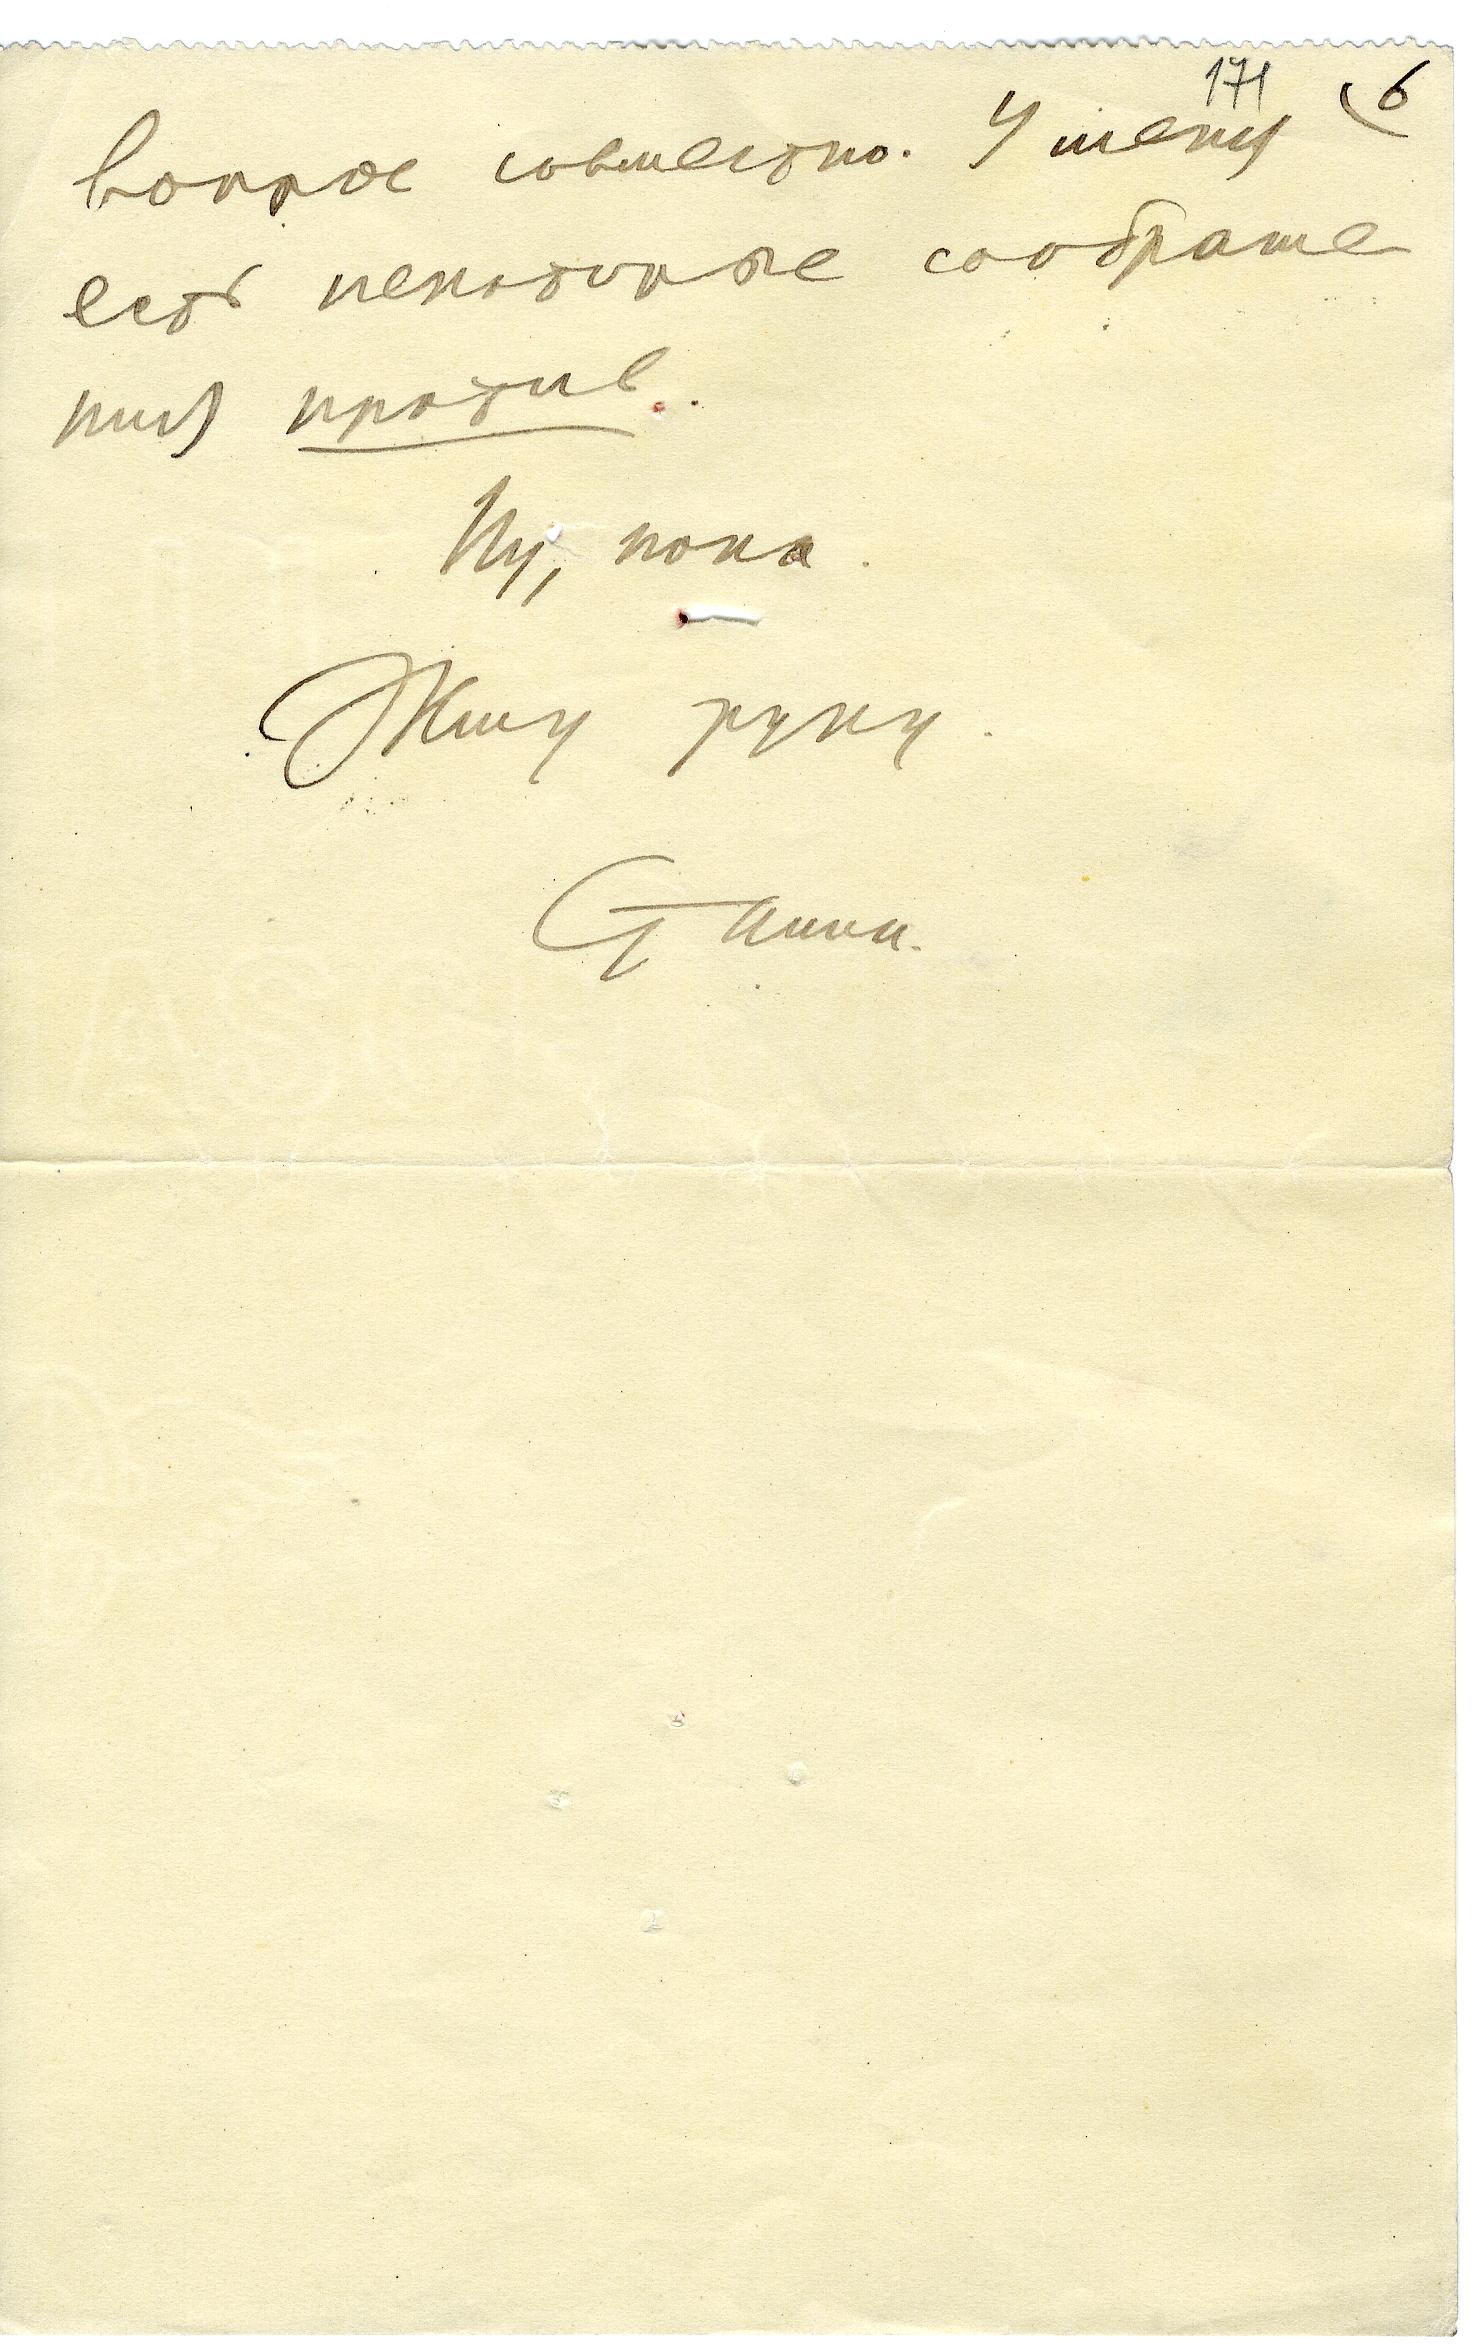 171 6
вопрос совместно. У меня
есть некоторые соображе
ния против.
Ну, пока.
Жму руку.
Сталин.